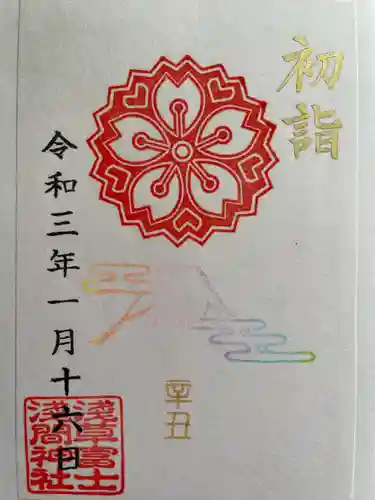 初詣
辛丑
令和三年一月十六日
淺草富士
淺間神社